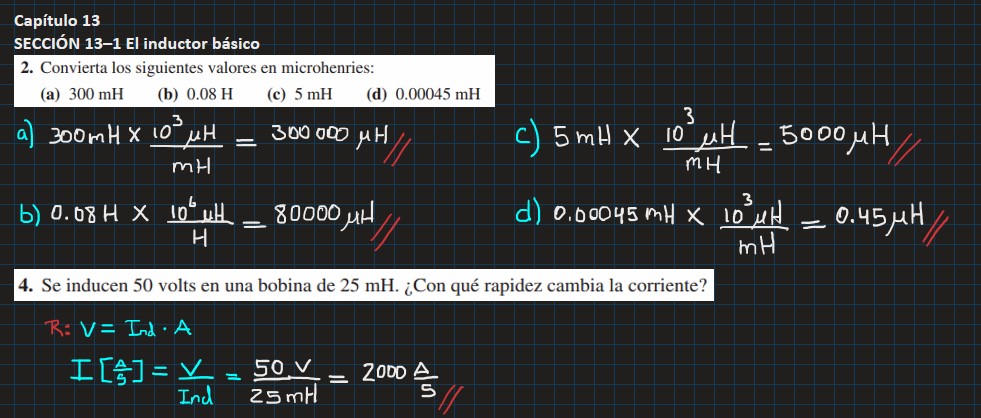 Capítulo 13
SECCIÓN 13–1 El inductor básico
2. Convierta los siguientes valores en microhenries:
(a) 300 mH (b) 0.08 H (c) 5 mH (d) 0.00045 mH
a) 300mH × 10³ μH / mH = 300 000 μH //
b) 0.08 H × 10⁶ μH / H = 80000 μH //
c) 5 mH × 10³ μH / mH = 5000 μH //
d) 0.00045 mH × 10³ μH / mH = 0.45 μH //
4. Se inducen 50 volts en una bobina de 25 mH. ¿Con qué rapidez cambia la corriente?
R: V = Ind · A
I [A/S] = V / Ind = 50 V / 25 mH = 2000 A/S //